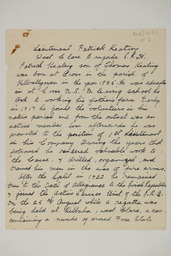 Lieutenant Patrick Keating
West Clare Brigade I.R.A.
Patrick Keating son of Thomas Keating
was born at in the parish of
Kilballyowen in the year 1896. He was educated
at Cross N.S. On leaving school he
took to working his fathers farm. Early
in 1917 he joined the volunteers in his
native parish and from the outset was an
active member soon afterwards he was
promoted to the position of 1st Lieutenant
in his Company. During the years that
followed he rendered valuable work to
the Cause. He drilled, organised, and
trained his men in the use of fire arms.
After the Split in 1922 he remained
true to the Oath of Allegiance to the Irish Republic
& joined the Active Service Unit of the I.R.A.
On the 26th August while a regatta was
being held at Kilbaha, West Clare, a car
containing a number of armed Free State